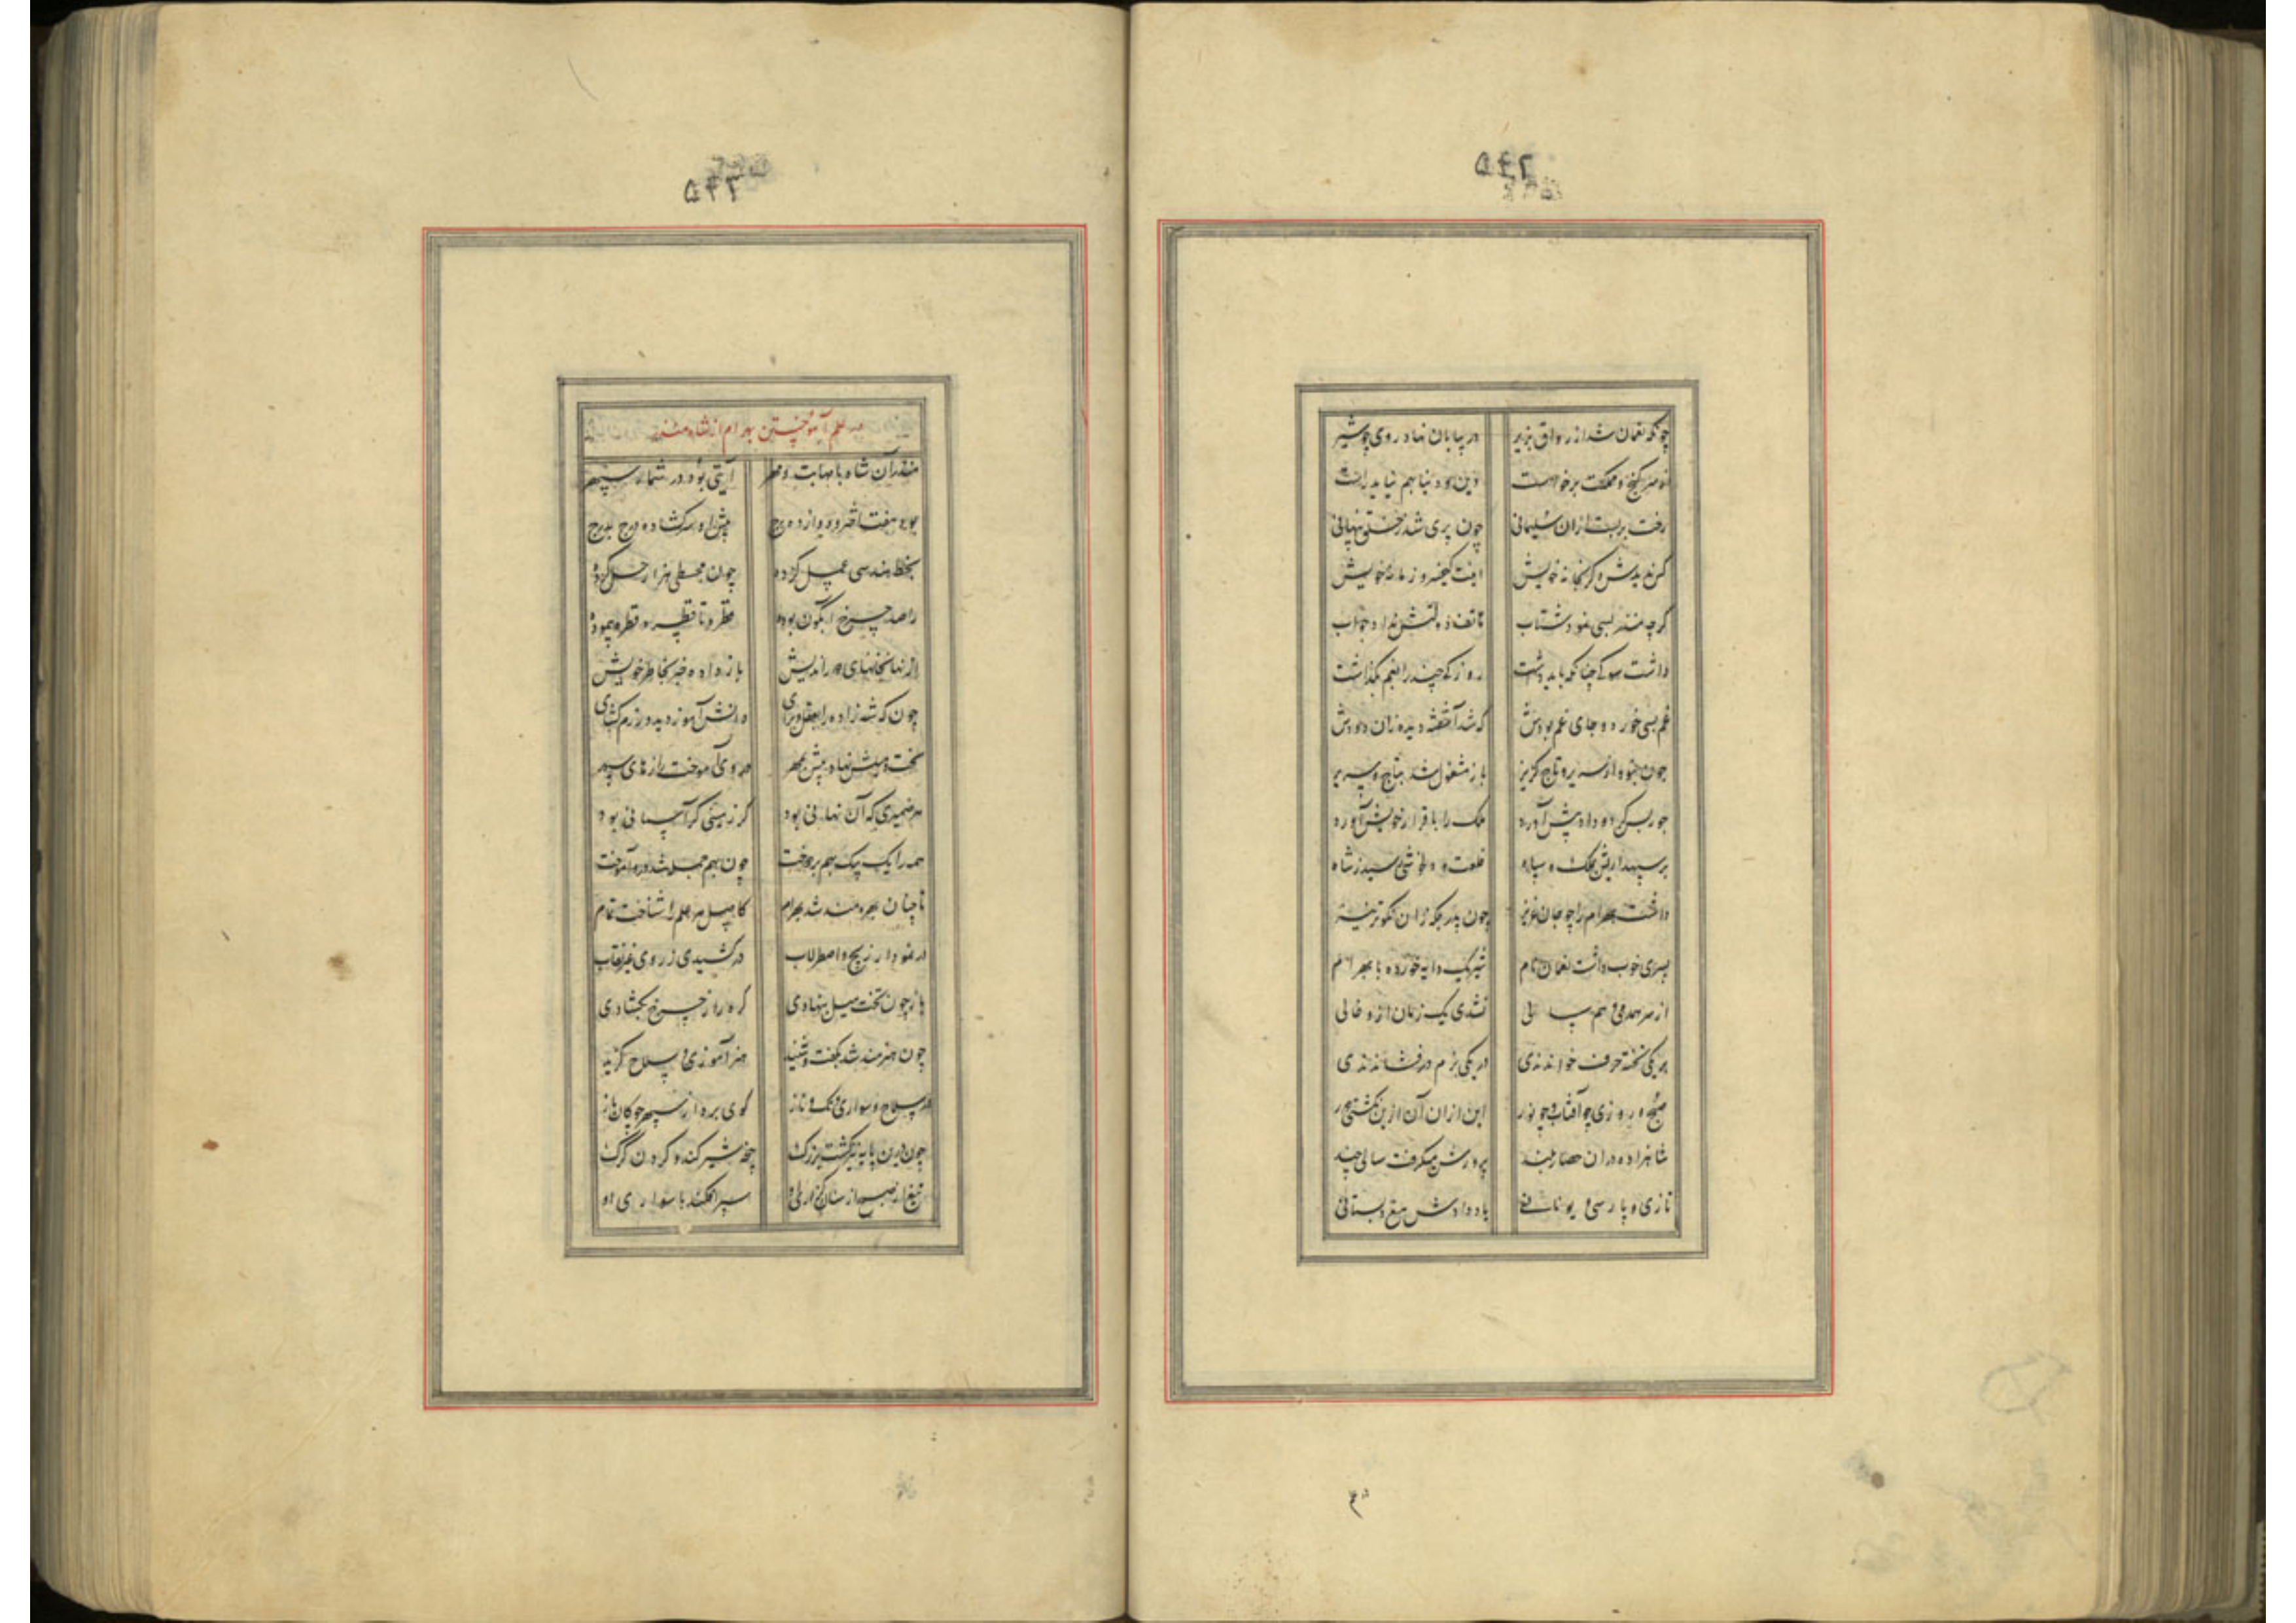 ۵۴۲
چونکه نعمان شد از رواق بزیر در بیابان نهاد روی چو شیر
از سر گنج و مملکت برخاست دین و دنیا بهم نیاید راست
رخت بربست ازان سلیمانی چون پری شد ز خلق پنهانی
کس ندیدش دگر بخانه خویش اینت کیخسرو زمانه خویش
گرچه منذر بسی نمود شتاب هاتف دولتش نداد جواب
داشت سوگی چنانکه باید داشت روزکی چند را بغم بگذاشت
غم بسی خورد و جای غم بودش که شد آشفته دیده زان دودش
چون نبود از سریر و تاج گریز باز مشغول شد بتاج و سریر
جور بس کرد و داد پیش آورد ملک را با قرار خویش آورد
بر سپهداریش ملک و سپاه خلعت و دلخوشی رسید ز شاه
داشت بهرام را چو جان عزیز چون پدر بلکه زان نکوتر نیز
پسری خوب داشت نعمان نام شیر یک دایه خورده با بهرام
از سر همدمی و هم سالی نشدی یک زمان ازو خالی
بر یکی تخته حرف خواندندی در یکی بزم در فشاندندی
هیچ روزی چو آفتاب و چو نور این ازان آن ازین نگشتی دور
شاهزاده دران حصار بلند پرورش میگرفت سالی چند
تازی و پارسی و یونانی یاد دادش مغ دبستانی
۵۴۳
در علم آموختن بهرام از شاه منذر
منذر آن شاه با مهابت و مهر آیتی بود در شمار سپهر
بود هفت اختر و دوازده برج پیش او سر گشاده درج بدرج
بخط هندسی عمل کرده چون مجسطی هزار حل کرده
راصد چرخ آبگون بوده قطر و تا قطر و قطره پیموده
از نهانخانهای دور اندیش باز داده خبر بخاطر خویش
چون که شهزاده را بعقل و برای دانش آموز دید و رزم گشای
تخت و میلش نهاد پیش بمهر در وی آموخت رازهای سپهر
هر ضمیری که آن نهانی بود گر زمینی گر آسمانی بود
همه را یک بیک بهم بردوخت چون بهم جمله شد درو آموخت
تا چنان بهره‌مند شد بهرام کاصل هر علم را شناخت تمام
در نمودار زیج و اصطرلاب در کشیدی ز روی غیب نقاب
باز چون تخت میل بنهادی گره راز چرخ بگشادی
چون هنرمند شد بگفت و شنید هنرآموزی سلاح گزید
در سلاح و سواری و تک و تاز گوی برد از سپهر چوگان باز
چون ازین پایه نیز گشت بزرگ پنجه شیر کند و گردن گرگ
تیغ صبح از سنان گزاری او سپر افکند با سواری او